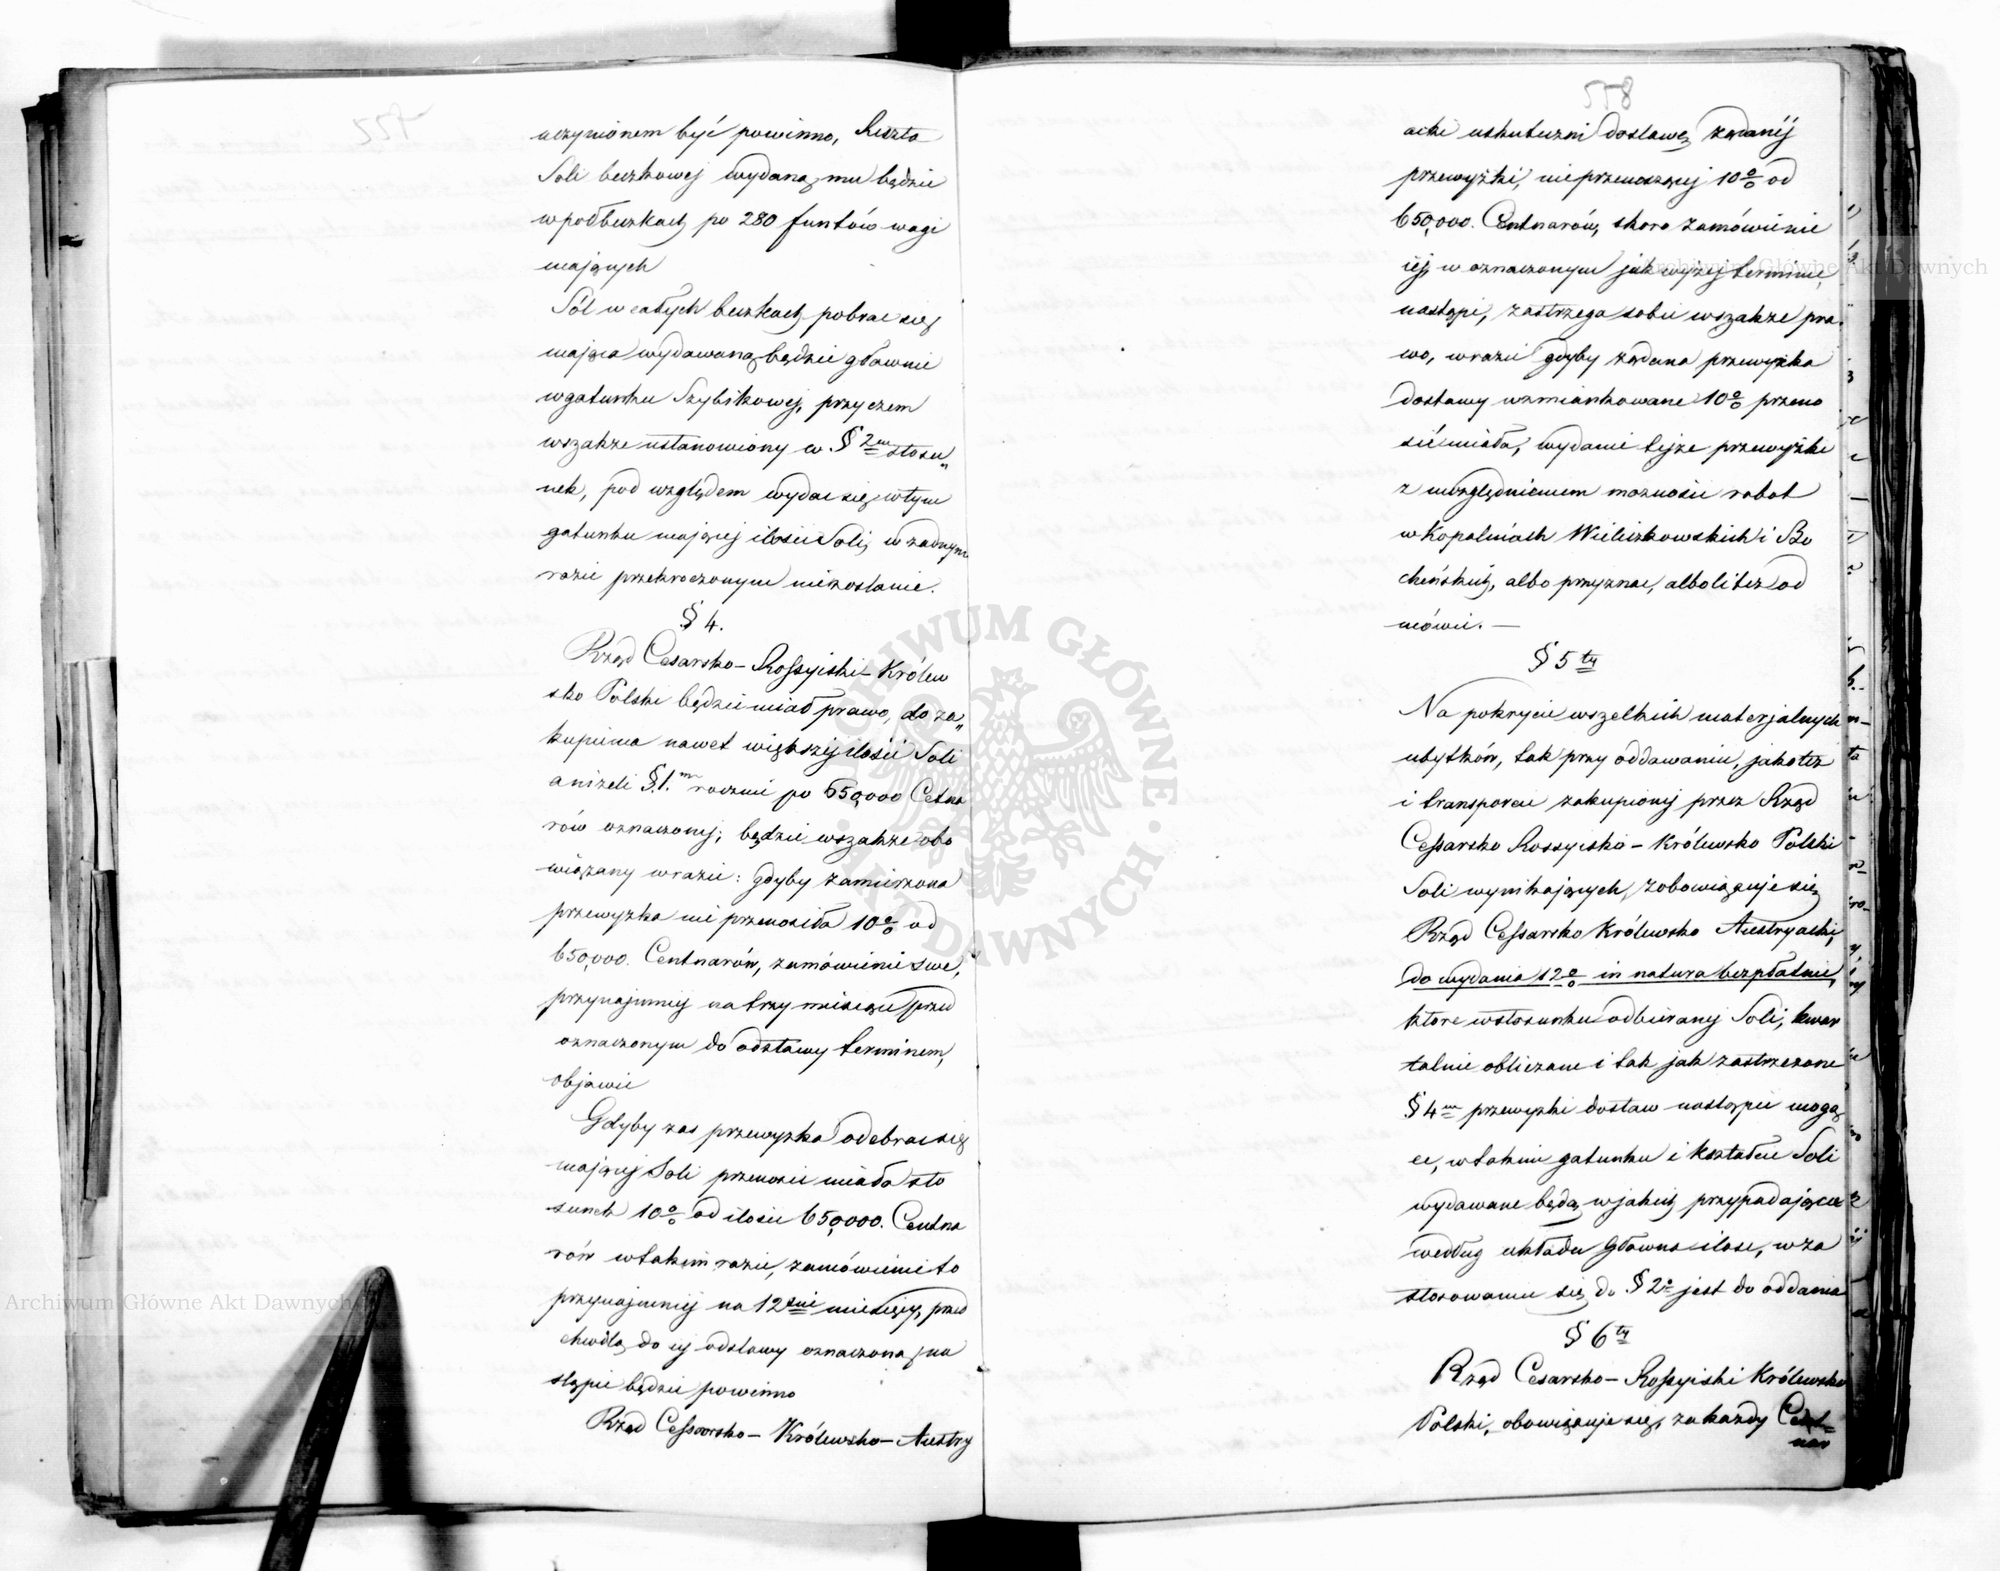 uczynionem być powinno, Reszta
Soli beczkowej wydaną mu będzie
w półbeczkach po 280 funtów wagi
mających
Sól w całych beczkach pobrać się
mająca wydawaną będzie głównie
w gatunku Szybikowej, przyczem
wszakże ustanowiony w § 2m stosu„
nek, pod względem wydać się w tym
gatunku mającej ilości Soli, w żadnym
razie przekroczonym niezostanie.
§ 4.
Rząd Cesarsko – Rossyiski – Królew
sko Polski będzie miał prawo, do za„
kupienia nawet większej ilości Soli
aniżeli §. 1.m rocznie po 650,000 Cetna
rów oznaczonej; będzie wszakże obo
wiązany w razie: gdyby zamierzona
przewyżka nie przenosiła 10% od
650,000. Centnarów, zamówienie swe,
przynajmniej na trzy miesiące przed
oznaczonym do odstawy terminem,
objawić
Gdyby zaś przewyżka odebrać się
mającej Soli przenosić miała sto
sunek 10% od ilości 650,000. Centna
rów w takim razie, zamówienie to
przynajmniej na 12ście miesięcy, przed
chwilą do jej odstawy oznaczoną, na
stąpić będzie powinno
Rząd Cessarsko – Królewsko – Austry
558
acki uskuteczni dostawę żądanéj
przewyżki, nieprzenoszącej 10% od
650,000. Centnarów, skoro zamówienie
jej, w oznaczonym jak wyżej terminie,
nastąpi, zastrzega sobie wszakże pra
wo, w razie gdyby żądana przewyżka
dostawy wzmiankowane 10% przeno
sić miała, wydanie tejże przewyżki
z uwzględnieniem możności robot
w Kopalniach Wieliczkowskich i Bo
cheńskich, albo przyznać, albo li też od
mówić. —
§ 5ty
Na pokrycie wszelkich materjalnych
ubytków, tak przy oddawaniu, jako też
i transporcie zakupionej przez Rząd
Cessarsko Rossyisko – Królewsko Polski
Soli wynikających, zobowiązuje się
Rząd Cessarsko Królewsko Austryacki,
do wydania 12% in natura bezpłatnie,
które w stosunku odbieranej Soli, kwar
talnie obliczane i tak jak zastrzeżone
§ 4m przewyżki dostaw nastąpić mogą
ce, w takim gatunku i kształcie Soli
wydawane będą, w jakich przypadająca
według układu główna ilość, w za
stosowaniu się do § 2o jest do oddania
§ 6ty
Rząd Cesarsko – Rossyiski Królewsko
Polski, obowiązuje się, za każdy Cent=
nar
Archiwum Główne Akt Dawnych
Archiwum Główne Akt Dawnych
ARCHIWUM GŁÓWNE · AKT DAWNYCH ·